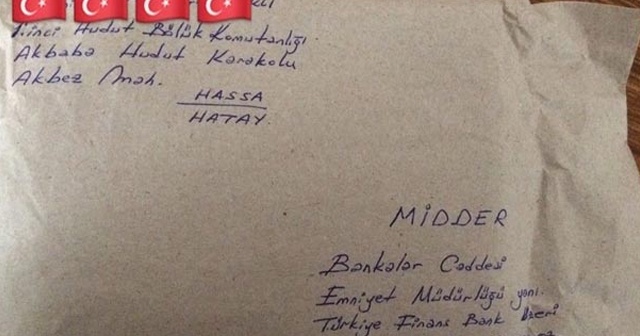 Hudut Bölük Komutanlığı
Akbaba Hudut Karakolu
Akbez Mah.
HASSA
HATAY
MİDDER
Bankalar Caddesi
Emniyet Müdürlüğü yanı.
Türkiye Finans Bank üzeri